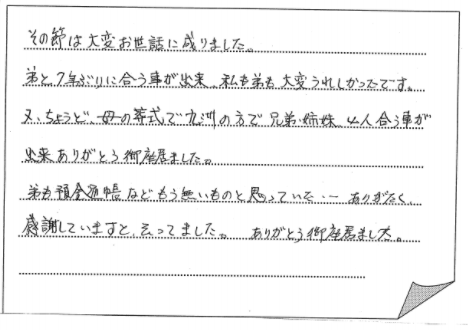 その節は大変お世話に成りました。
弟と、7年ぶりに合う事が出来、私も弟も大変うれしかったです。
又、ちょうど、母の葬式で九州の方で兄弟・姉妹、4人合う事が
出来ありがとう御座居ました。
弟も預金通帳などもう無いものと思っていた… ありがたく、
感謝していますと、云ってました。 ありがとう御座居ました。